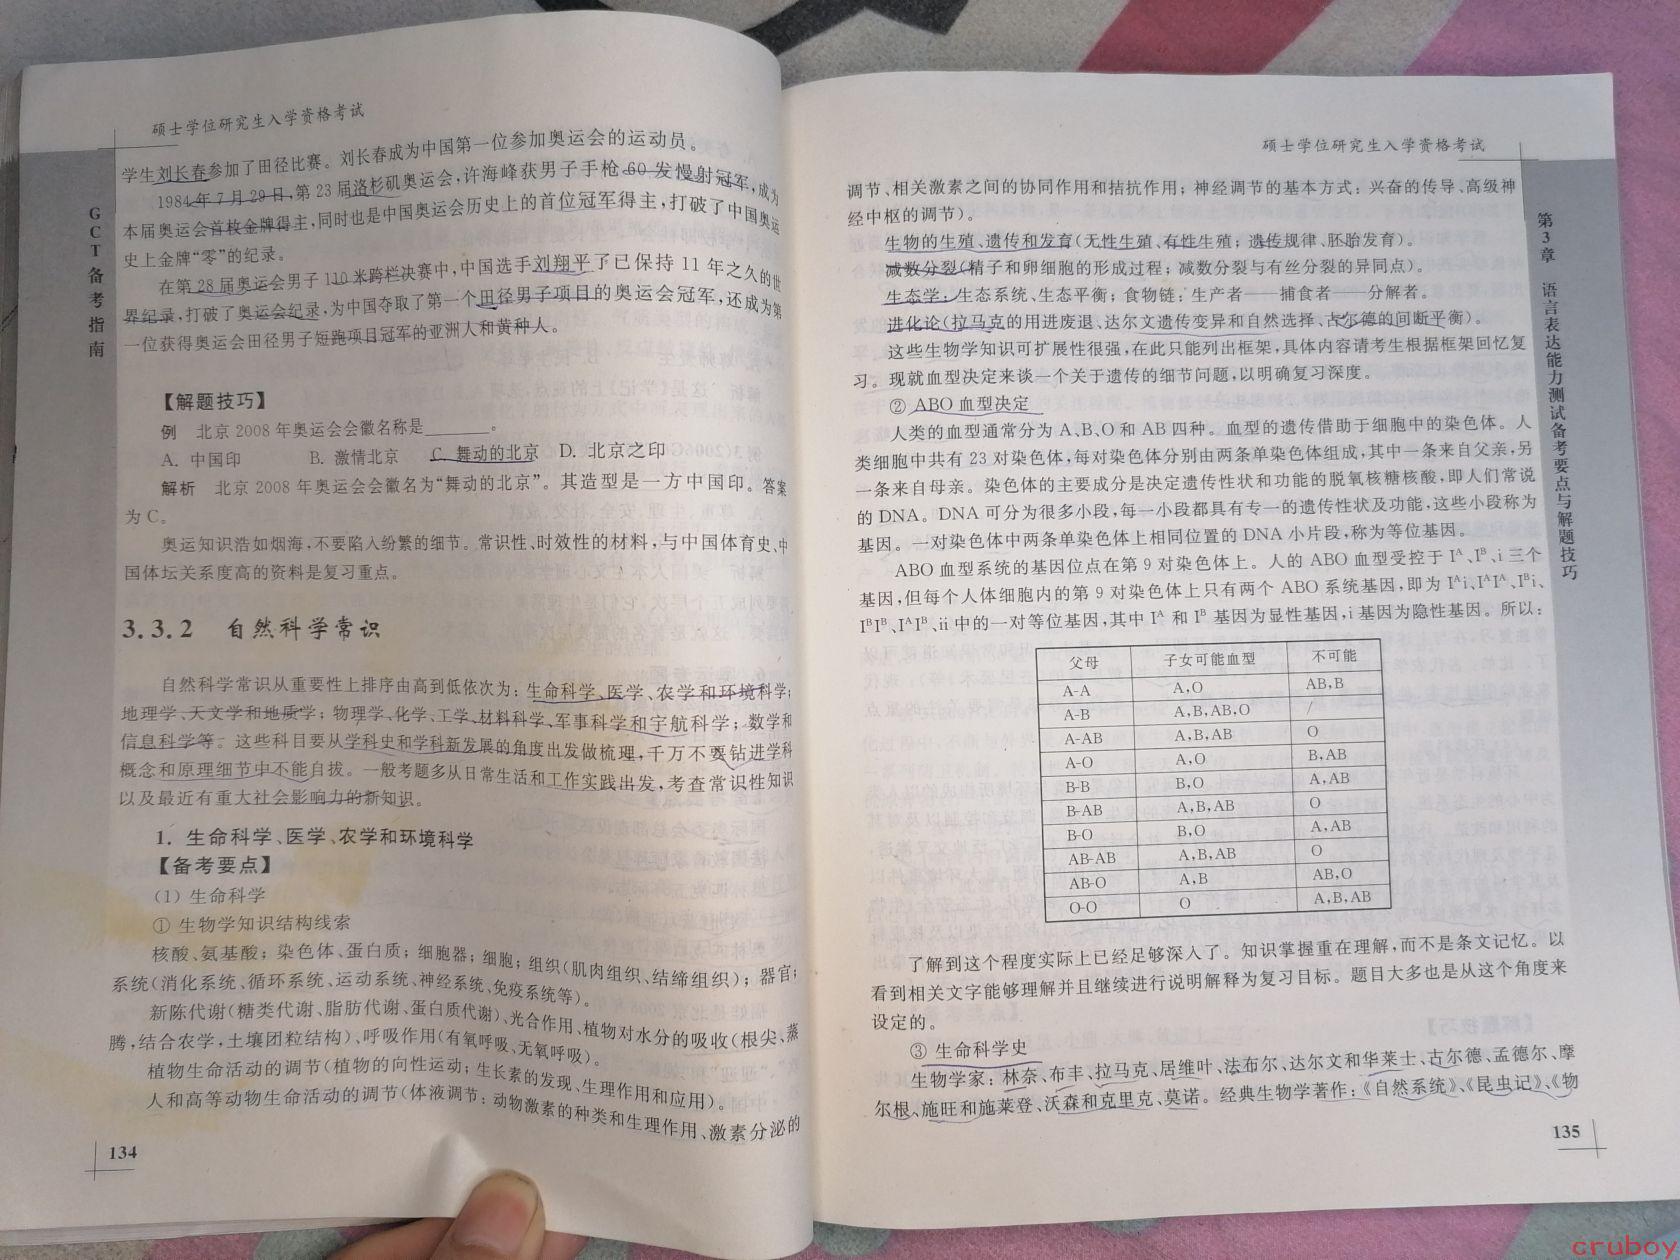 硕士学位研究生入学资格考试
GCT备考指南
学生刘长春参加了田径比赛。刘长春成为中国第一位参加奥运会的运动员。
1984年7月29日,第23届洛杉矶奥运会,许海峰获男子手枪60发慢射冠军,成为
本届奥运会首枚金牌得主,同时也是中国奥运会历史上的首位冠军得主,打破了中国奥运
史上金牌“零”的纪录。
在第28届奥运会男子110米跨栏决赛中,中国选手刘翔平了已保持11年之久的世
界纪录,打破了奥运会纪录,为中国夺取了第一个田径男子项目的奥运会冠军,还成为第
一位获得奥运会田径男子短跑项目冠军的亚洲人和黄种人。
【解题技巧】
例 北京2008年奥运会会徽名称是______。
A. 中国印 B. 激情北京 C. 舞动的北京 D. 北京之印
解析 北京2008年奥运会会徽名为“舞动的北京”。其造型是一方中国印。答案
为C。
奥运知识浩如烟海,不要陷入纷繁的细节。常识性、时效性的材料,与中国体育史、中
国体坛关系度高的资料是复习重点。
3.3.2 自然科学常识
自然科学常识从重要性上排序由高到低依次为：生命科学、医学、农学和环境科学；
地理学、天文学和地质学；物理学、化学、工学、材料科学、军事科学和宇航科学；数学和
信息科学等。这些科目要从学科史和学科新发展的角度出发做梳理,千万不要钻进学科
概念和原理细节中不能自拔。一般考题多从日常生活和工作实践出发,考查常识性知识
以及最近有重大社会影响力的新知识。
1. 生命科学、医学、农学和环境科学
【备考要点】
(1) 生命科学
① 生物学知识结构线索
核酸、氨基酸；染色体、蛋白质；细胞器；细胞；组织(肌肉组织、结缔组织)；器官；
系统(消化系统、循环系统、运动系统、神经系统、免疫系统等)。
新陈代谢(糖类代谢、脂肪代谢、蛋白质代谢)、光合作用、植物对水分的吸收(根尖、蒸
腾,结合农学,土壤团粒结构)、呼吸作用(有氧呼吸、无氧呼吸)。
植物生命活动的调节(植物的向性运动；生长素的发现、生理作用和应用)。
人和高等动物生命活动的调节(体液调节：动物激素的种类和生理作用、激素分泌的
134
硕士学位研究生入学资格考试
第3章 语言表达能力测试备考要点与解题技巧
调节、相关激素之间的协同作用和拮抗作用；神经调节的基本方式；兴奋的传导、高级神
经中枢的调节)。
生物的生殖、遗传和发育(无性生殖、有性生殖；遗传规律、胚胎发育)。
减数分裂(精子和卵细胞的形成过程；减数分裂与有丝分裂的异同点)。
生态学：生态系统、生态平衡；食物链：生产者——捕食者——分解者。
进化论(拉马克的用进废退、达尔文遗传变异和自然选择、古尔德的间断平衡)。
这些生物学知识可扩展性很强,在此只能列出框架,具体内容请考生根据框架回忆复
习。现就血型决定来谈一个关于遗传的细节问题,以明确复习深度。
② ABO血型决定
人类的血型通常分为A、B、O和AB四种。血型的遗传借助于细胞中的染色体。人
类细胞中共有23对染色体,每对染色体分别由两条单染色体组成,其中一条来自父亲,另
一条来自母亲。染色体的主要成分是决定遗传性状和功能的脱氧核糖核酸,即人们常说
的DNA。DNA可分为很多小段,每一小段都具有专一的遗传性状及功能,这些小段称为
基因。一对染色体中两条单染色体上相同位置的DNA小片段,称为等位基因。
ABO血型系统的基因位点在第9对染色体上。人的ABO血型受控于Iᴬ、Iᴮ、i三个
基因,但每个人体细胞内的第9对染色体上只有两个ABO系统基因,即为Iᴬi、IᴬIᴬ、Iᴮi、
IᴮIᴮ、IᴬIᴮ、ii中的一对等位基因,其中Iᴬ和Iᴮ基因为显性基因,i基因为隐性基因。所以：
父母 子女可能血型 不可能
A-A A,O AB,B
A-B A,B,AB,O /
A-AB A,B,AB O
A-O A,O B,AB
B-B B,O A,AB
B-AB A,B,AB O
B-O B,O A,AB
AB-AB A,B,AB O
AB-O A,B AB,O
O-O O A,B,AB
了解到这个程度实际上已经足够深入了。知识掌握重在理解,而不是条文记忆。以
看到相关文字能够理解并且继续进行说明解释为复习目标。题目大多也是从这个角度来
设定的。
③ 生命科学史
生物学家：林奈、布丰、拉马克、居维叶、法布尔、达尔文和华莱士、古尔德、孟德尔、摩
尔根、施旺和施莱登、沃森和克里克、莫诺。经典生物学著作：《自然系统》、《昆虫记》、《物
135
cruboy